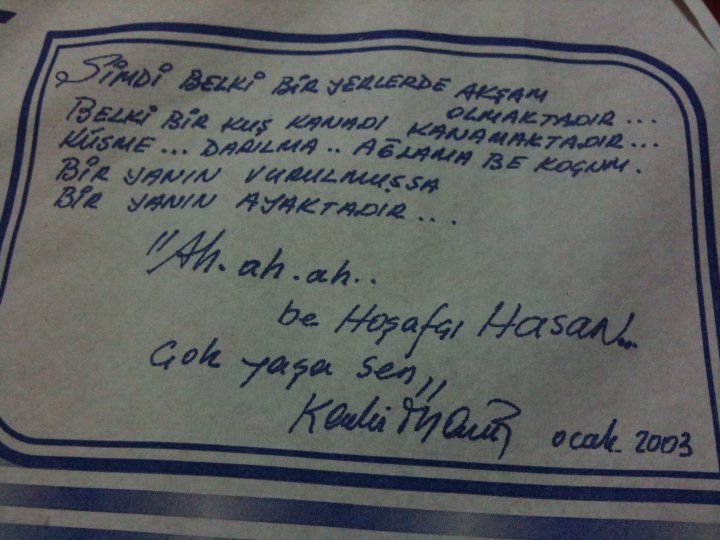 ŞİMDİ BELKİ BİR YERLERDE AKŞAM
OLMAKTADIR...
BELKİ BİR KUŞ KANADI KANAMAKTADIR...
KÜSME... DARILMA.. AĞLAMA BE KOÇUM.
BİR YANIN VURULMUŞSA
BİR YANIN AYAKTADIR...
"Ah.ah.ah..
be Hoşafçı HASAN...
Çok yaşa sen"
Kadir İnanır ocak 2003